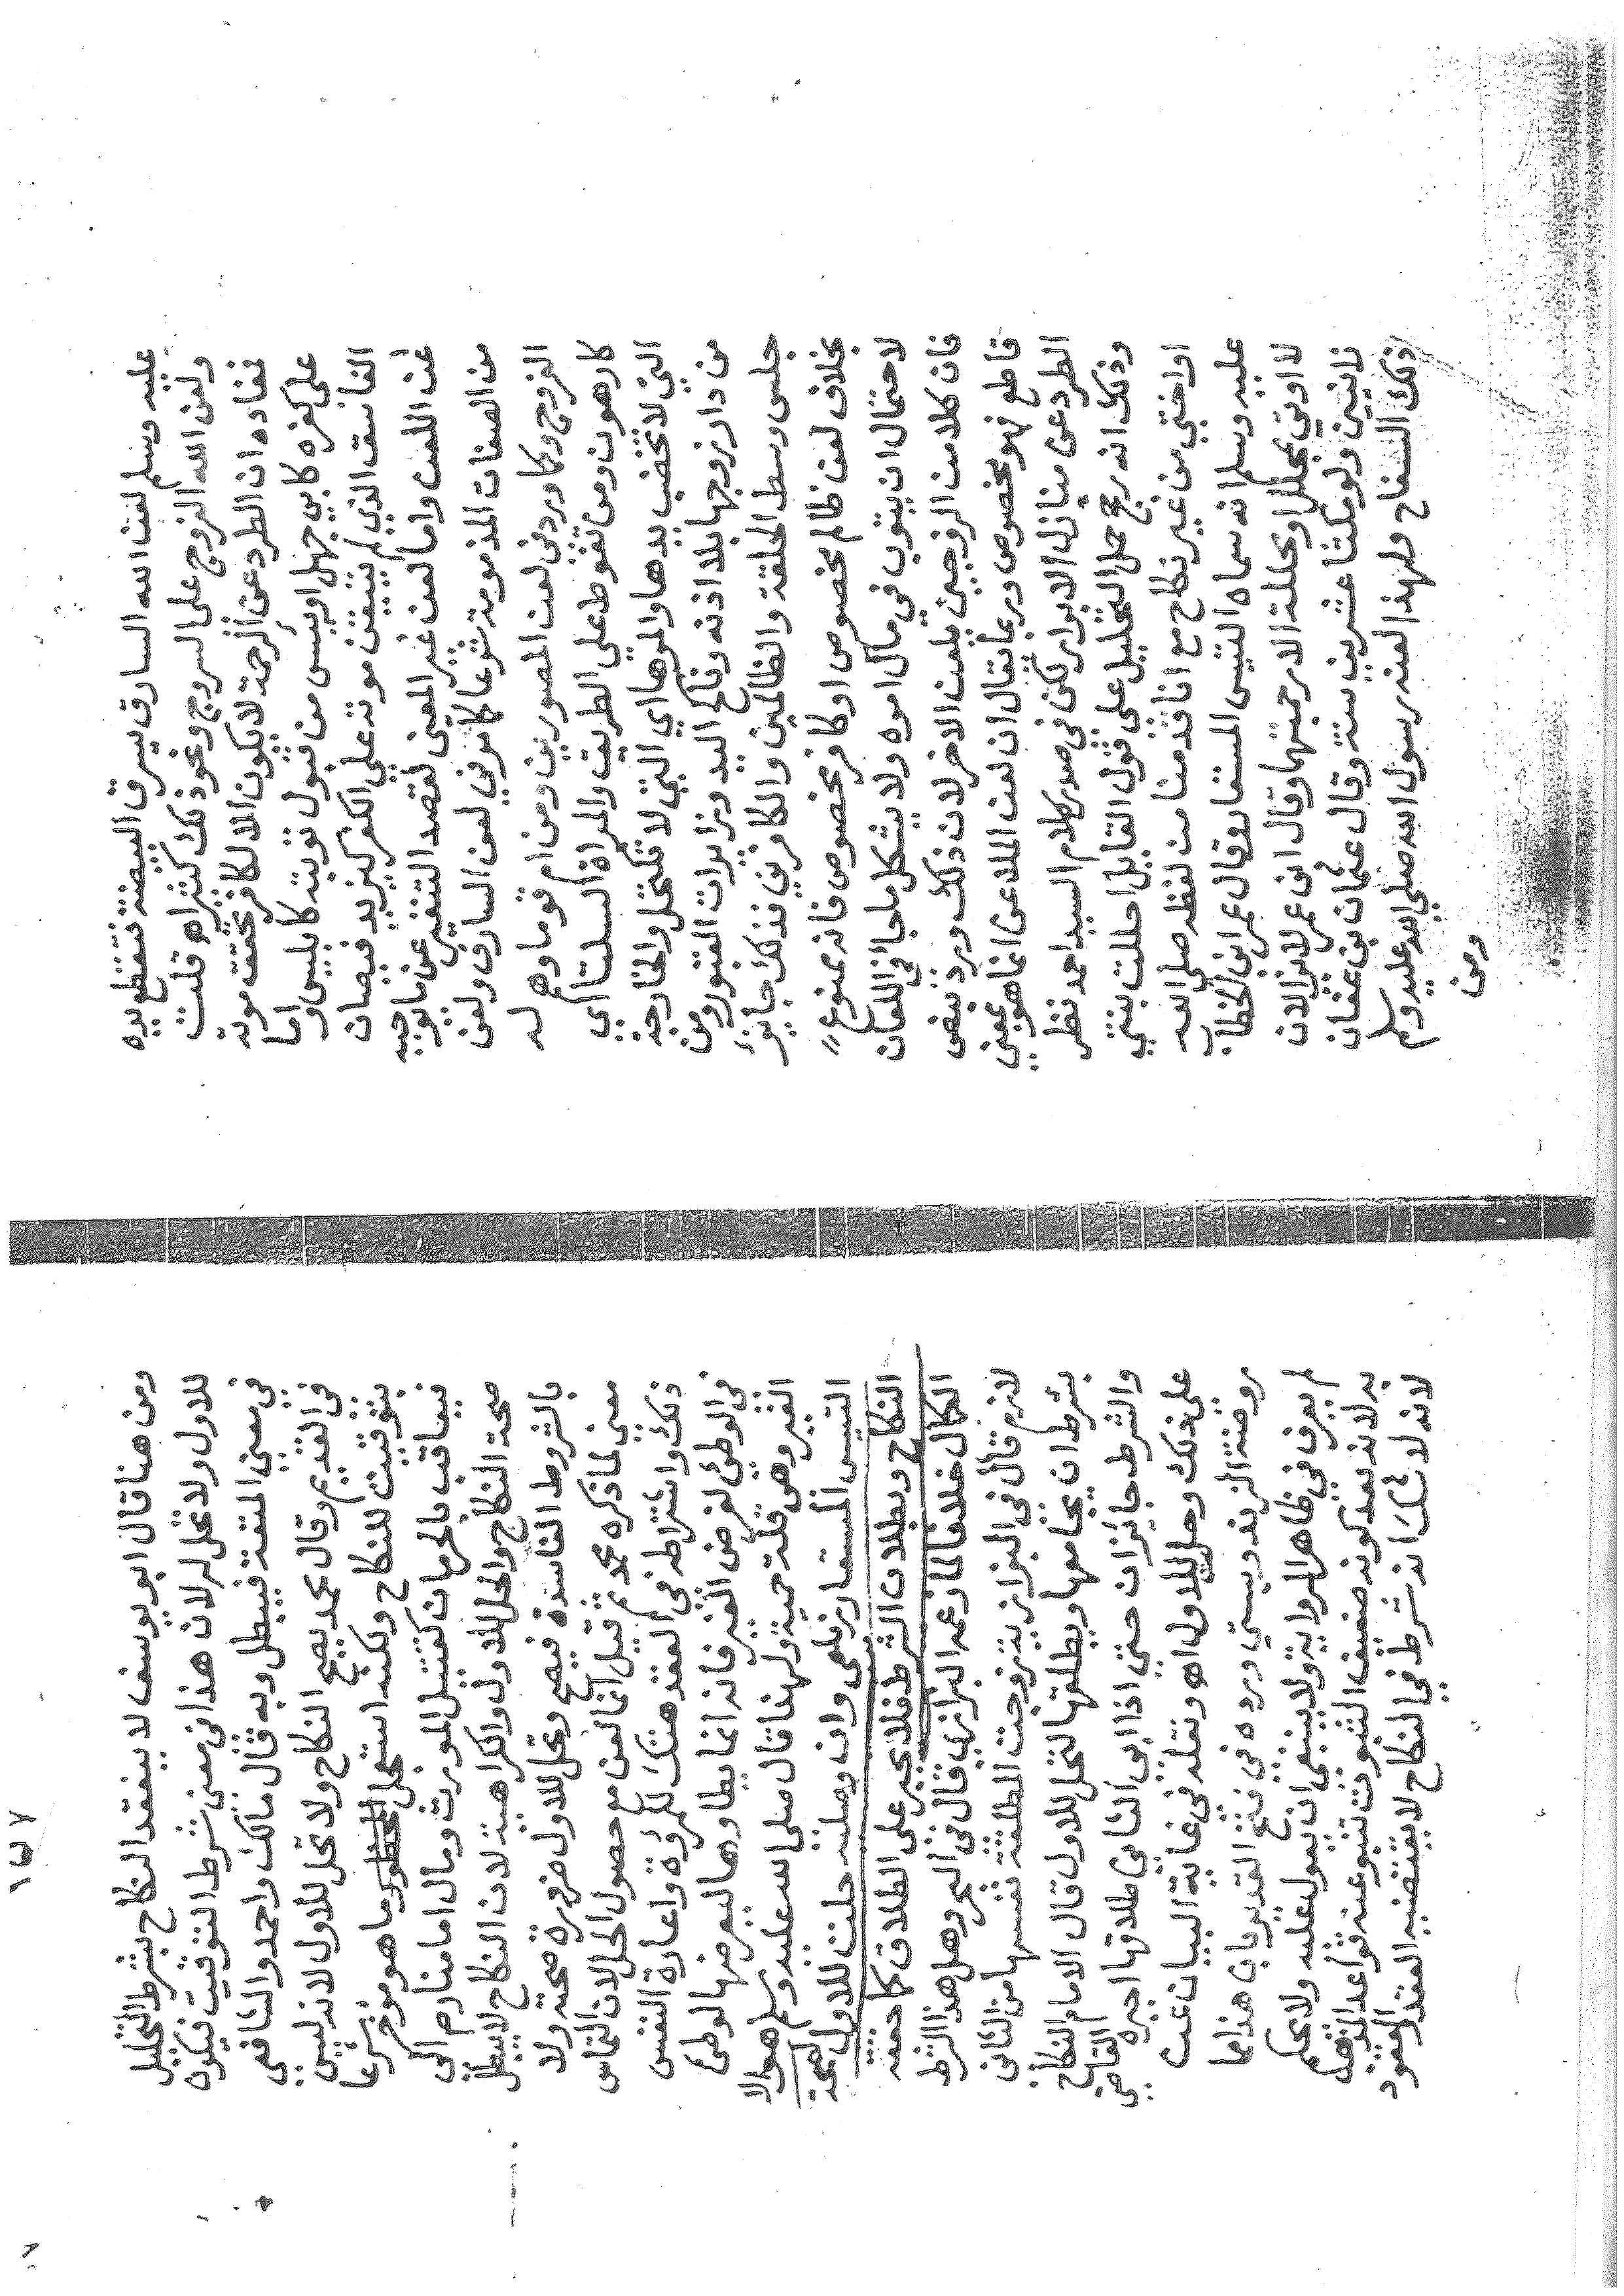 عليه وسلم لعن الله السارق يسرق البيضة فتقطع يده
ولعن الله الفروج على السروج ونحو ذلك كثير اه قلت
فمفاده ان الطرد عن الرحمة لا يكون الا لكافر تحققت موته
على كفره كابي جهل او يئس من قبول توبته كابليس واما
الفاسق الذي لم يتيقن موته على الكفر كيزيد فيصان
عن اللعن واما لعن غير المعين لقصد التنفير عن
من الصفات المذمومة شرعا كما مر في لعن السارق ولعن
الفروج وكما ورد في لعن المصورين ومن ام قوما وهم له
كارهون ومن تغوط على الطريق والمراة السلتا اي
التي لا تختضب يدها والمرها اي التي لا تكتحل والخارجة
من دار زوجها بلا اذنه وناكح اليد وزايرات القبور ومن
جلس وسط الحلقة والظالمين والكافرين فذلك جايز
بخلاف لعن ظالم مخصوص او كافر مخصوص فانه ممنوع
لاحتمال ان يتوب في مآل امره ولا يشكل ما جا في اللعان
فان كلا من الزوجين يلعن الاخر لان ذلك ورد بنص
قاطع فهو مخصوص وربما يقال ان لعن الملاعن انما هو بمعنى
الطرد عن منازل الابرار لكن في صدر كلام السيد احمد نظر
وذلك انه رجح حمل التحليل على قول القايل احللت بنتي
او اختي من غير نكاح مع انا قدمنا من لفظه صلى الله
عليه وسلم انه سماه التيس المستعار وقال عمر ابن الخطاب
لا اوتي بمحلل او محللة الا رجمتهما وقال ابن عمر لا يزالان
زانيين ولو مكثا عشرين سنة وقال عثمان بن عفان
ذلك السفاح ولهذا لعنه رسول الله صلى الله عليه وسلم
ومن
١٤٧
ومن هنا قال ابو يوسف لا ينعقد النكاح بشرط التحليل
للاول ولا تحل له لان هذا في معنى شرط التوقيت فيكون
في معنى المتعة فيبطل وبه قال مالك واحمد والشافعي
في القديم وقال محمد يصح النكاح ولا تحل للاول لانه ليس
بتوقيت للنكاح ولكنه استعجل المحظور ما هو مؤخر شرعا
فيعاقب بالحرمان كقتيل المورث ومال امامنا رم الى
صحة النكاح والحل للاول والكراهية لان النكاح لا يبطل
بالشروط الفاسدة فيصح وتحل للاول ضرورة صحته ولا
معنى لما ذكره محمد ثم قيل انما لعن مع حصول الحل لان التماس
ذلك واشتراطه في العقد هتك للمروة واعارة النفس
في الوطئ لغرض الغير فانه انما يطاوها ليعرضها لوطئ
الغير وهي قلة حمية ولهذا قال صلى الله عليه وسلم هو الا
التيس المستعار زيلعي وان وصليه حلت للاول لصحة
النكاح وبطلان الشرط فلا يجبر على الطلاق كما حققه
الكمال خلافا لما زعمه البزازي قال في البحر وهل هذا الشرط
لازم قال في البزازيه زوجت المطلقة نفسها من الثاني
بشرط ان يجامعها ويطلقها لتحل للاول قال الامام النكاح
والشرط جايزان حتى اذا ابى الثاني طلاقها اجبره القاضي
على ذلك وحلت للاول اه ونقله في غاية البيان عن
روضة الزندويستي ورده في فتح القدير بان هذا مما
لم يعرف في ظاهر الرواية ولا ينبغي ان يعول عليه ولا يحكم
به لانه بعد كونه ضعيف الثبوت تنبو عنه قواعد المذهب
لانه لا شك انه شرط في النكاح لا يقتضيه العقد والعقود